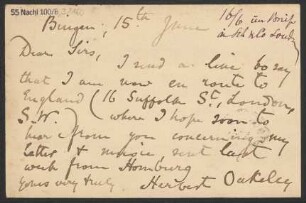 55 Nachl 100/B
Bingen, 15th June 16/6 in Brief
Dear Sirs,
I send a line to say
that I am now en route to
England (16 Suffolk St., London,
S.W. where I hope soon to
hear) from you concerning my
letter & music sent last
week from Homburg
Yours very truly. Herbert Oakeley